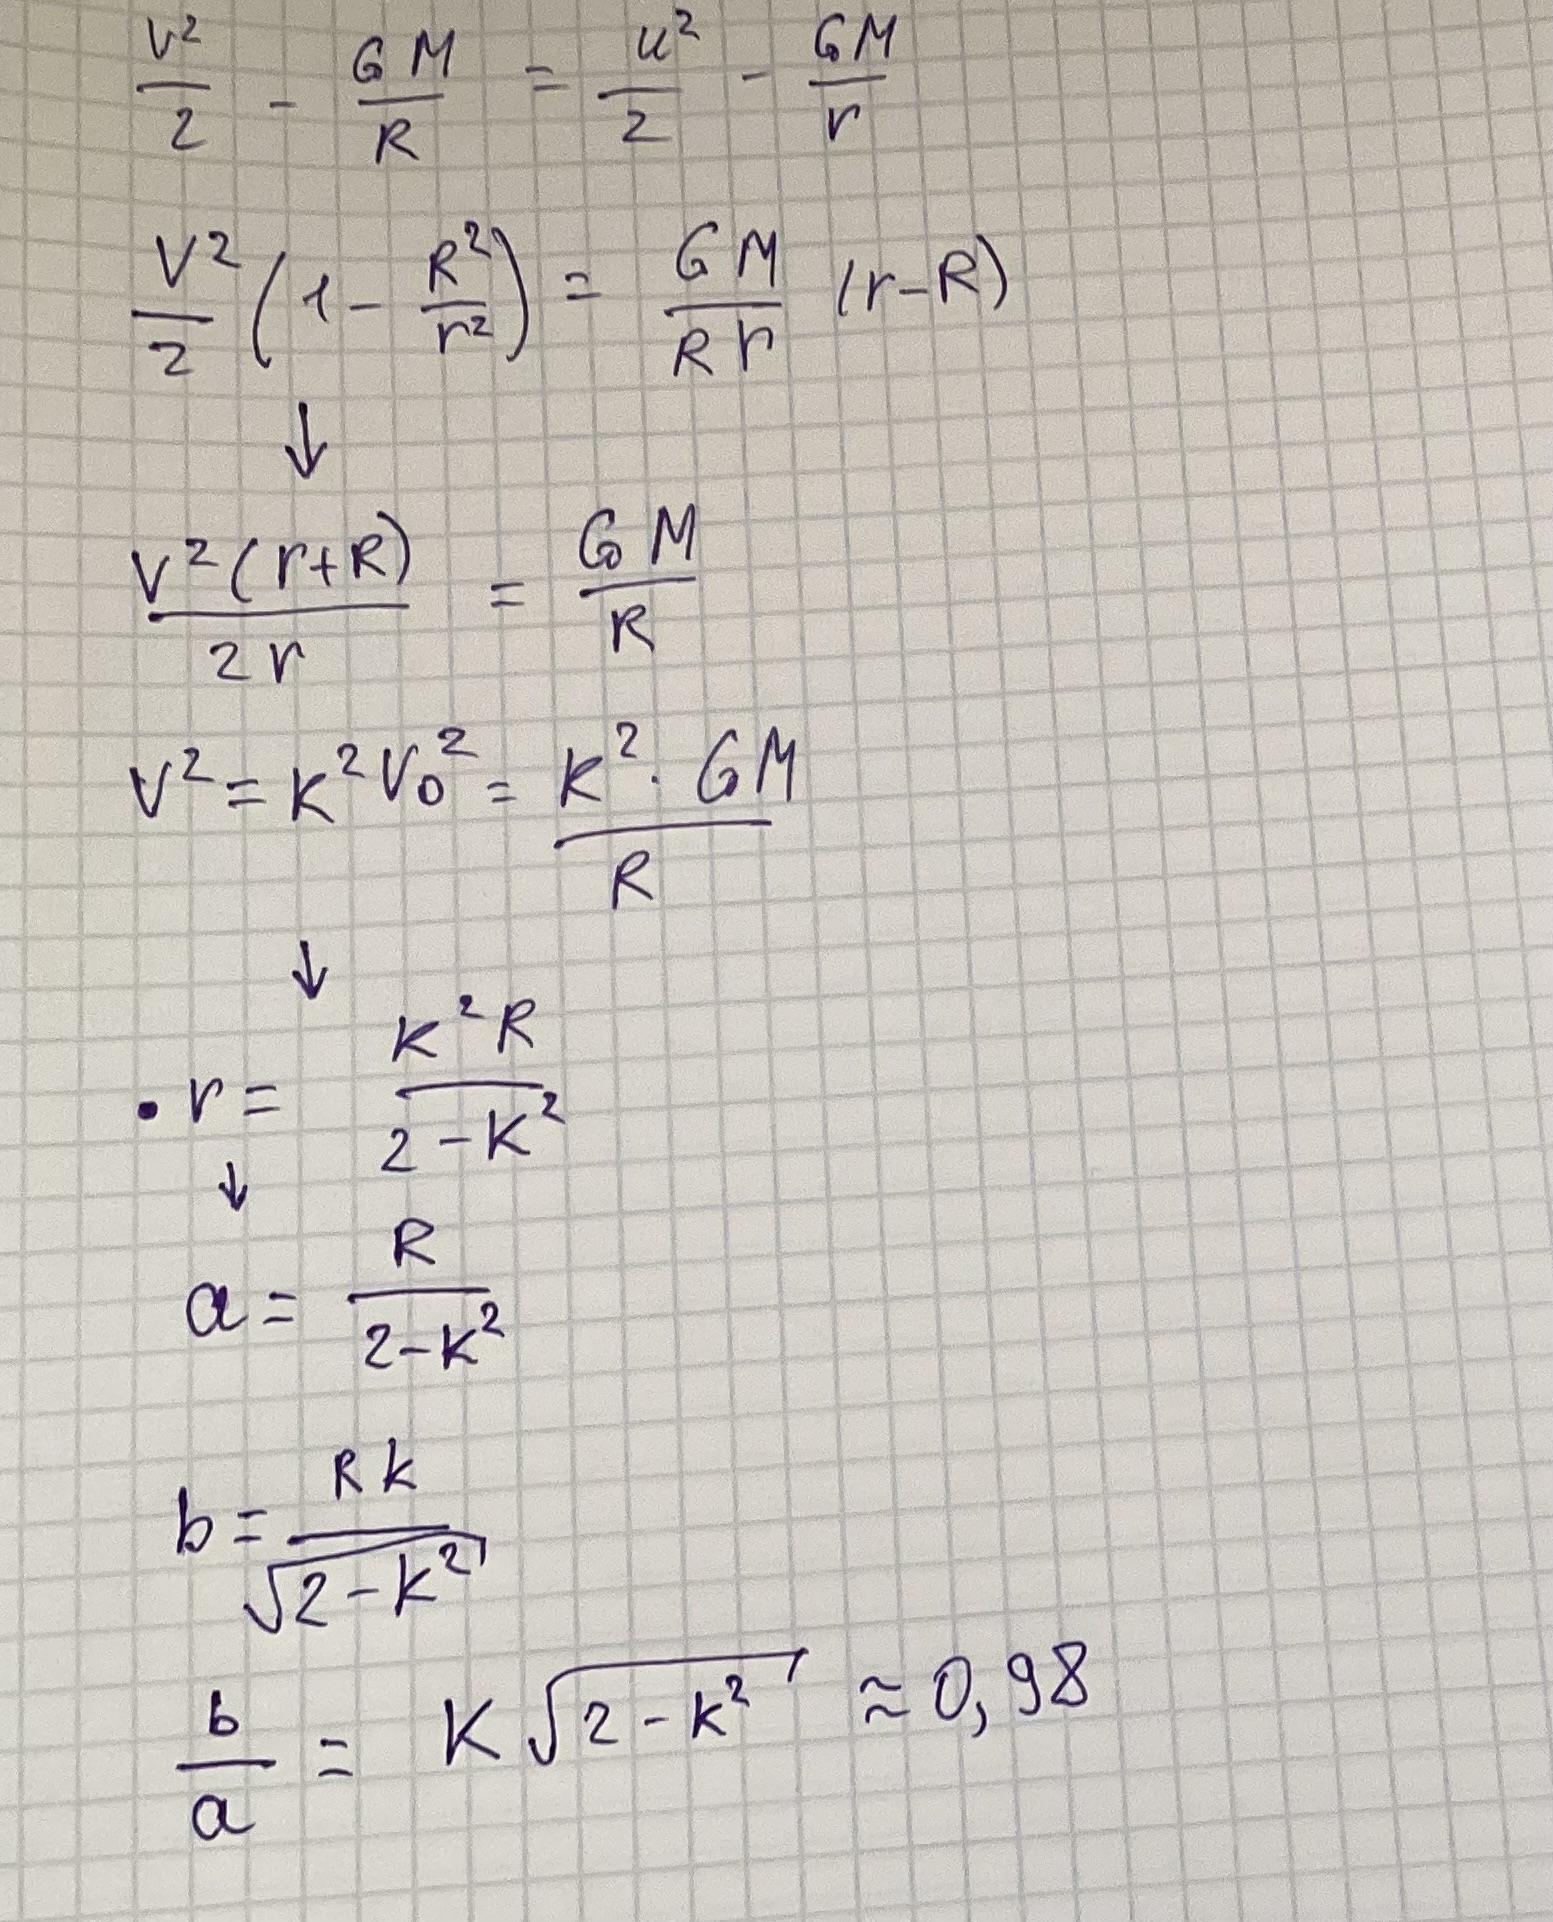 v²/2 - GM/R = u²/2 - GM/r
V²/2 (1 - R²/r²) = GM/Rr (r-R)
↓
V²(r+R)/2r = GM/R
V² = K²V₀² = K²·GM/R
↓
• r = K²R/2-K²
↓
a = R/2-K²
b = Rk/√2-k²
b/a = K√2-k² ≈ 0,98